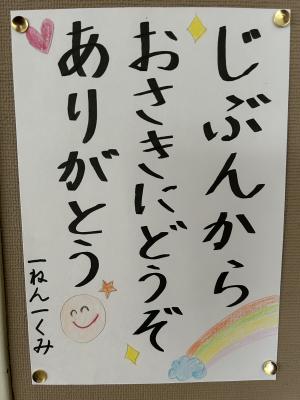 じぶんから
おさきにどうぞ
ありがとう
一ねん一くみ